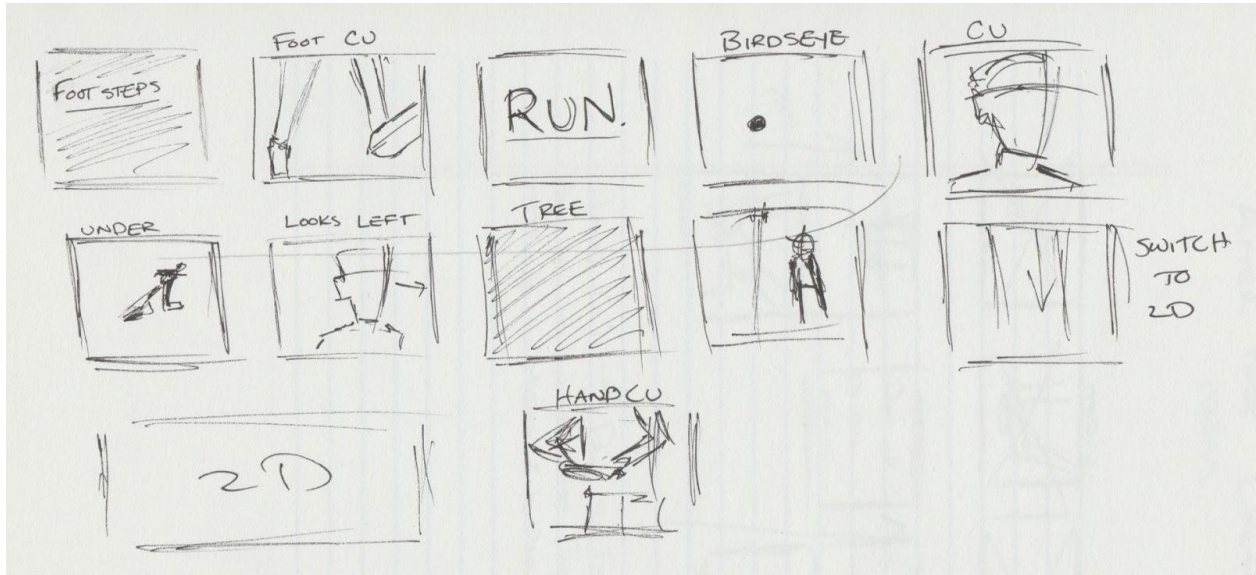 FOOT STEPS
FOOT CU
RUN.
BIRDSEYE
CU
UNDER
LOOKS LEFT
TREE
SWITCH
TO
2D
2D
HAND CU